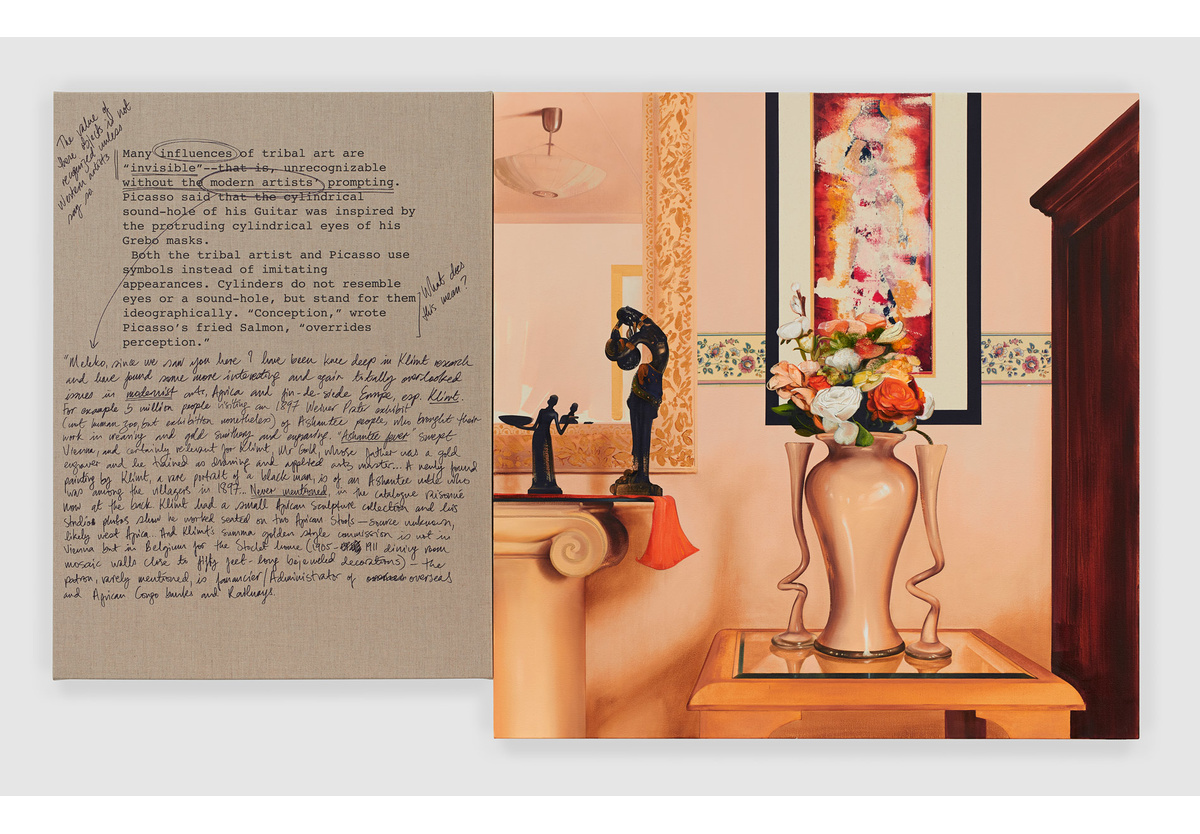 The value of
these objects is not
recognized unless
Western artists
say so
Many influences of tribal art are
“invisible”--that is, unrecognizable
without the modern artists’ prompting.
Picasso said that the cylindrical
sound-hole of his Guitar was inspired by
the protruding cylindrical eyes of his
Grebo masks.
Both the tribal artist and Picasso use
symbols instead of imitating
appearances. Cylinders do not resemble
eyes or a sound-hole, but stand for them
ideographically. “Conception,” wrote
Picasso’s fried Salmon, “overrides
perception.”
What does
this mean?
"Meleko, since we saw you here I have been knee deep in Klimt research
and have found some more interesting and again totally overlooked
issues in modernist art, Africa and fin-de-siecle Europe, esp. Klimt.
For example 5 million people visiting an 1897 Weiner Prater exhibit
(int. human zoo, but exhibition nonetheless) of Ashantee people, who brought their
work in weaving and gold smithery and engraving. "Ashantee fever" swept
Vienna, and certainly relevant for Klimt, Mr Gold, whose father was a gold
engraver and he trained as drawing and applied arts master... A newly found
painting by Klimt, a rare portrait of a black man, is of an Ashantee noble who
was among the villagers in 1897... Never mentioned, in the catalogue raisonne
now at the back Klimt had a small African sculpture collection and his
studio photos show he worked seated on two African Stools – source unknown,
likely west Africa. And Klimt's summa golden style commission is not in
Vienna but in Belgium for the Stoclet home (1905- 1911 dining room
mosaic walls close to fifty feet-long bejeweled decorations) – the
patron, rarely mentioned, is financier/Administrator of overseas
and African Congo banks and Railways.